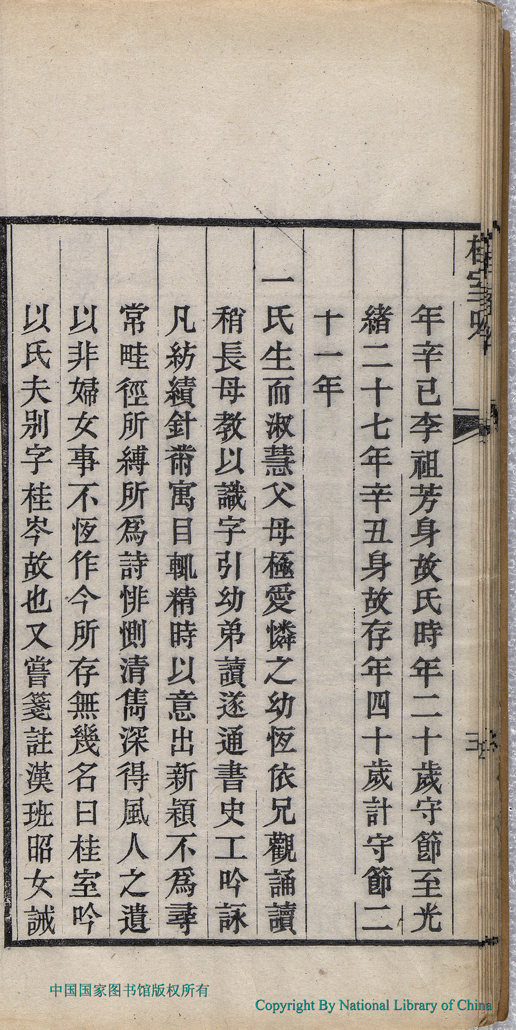 桂室吟
三
年辛巳李祖芳身故氏時年二十歲守節至光
緒二十七年辛丑身故存年四十歲計守節二
十一年
一氏生而淑慧父母極愛憐之幼恆依兄觀誦讀
稍長母教以識字引幼弟讀遂通書史工吟詠
凡紡績針黹寓目輒精時以意出新穎不為尋
常畦徑所縛所為詩悱惻清雋深得風人之遺
以非婦女事不恆作今所存無幾名曰桂室吟
以氏夫別字桂岑故也又嘗箋註漢班昭女誡
中国国家图书馆版权所有
Copyright By National Library of China